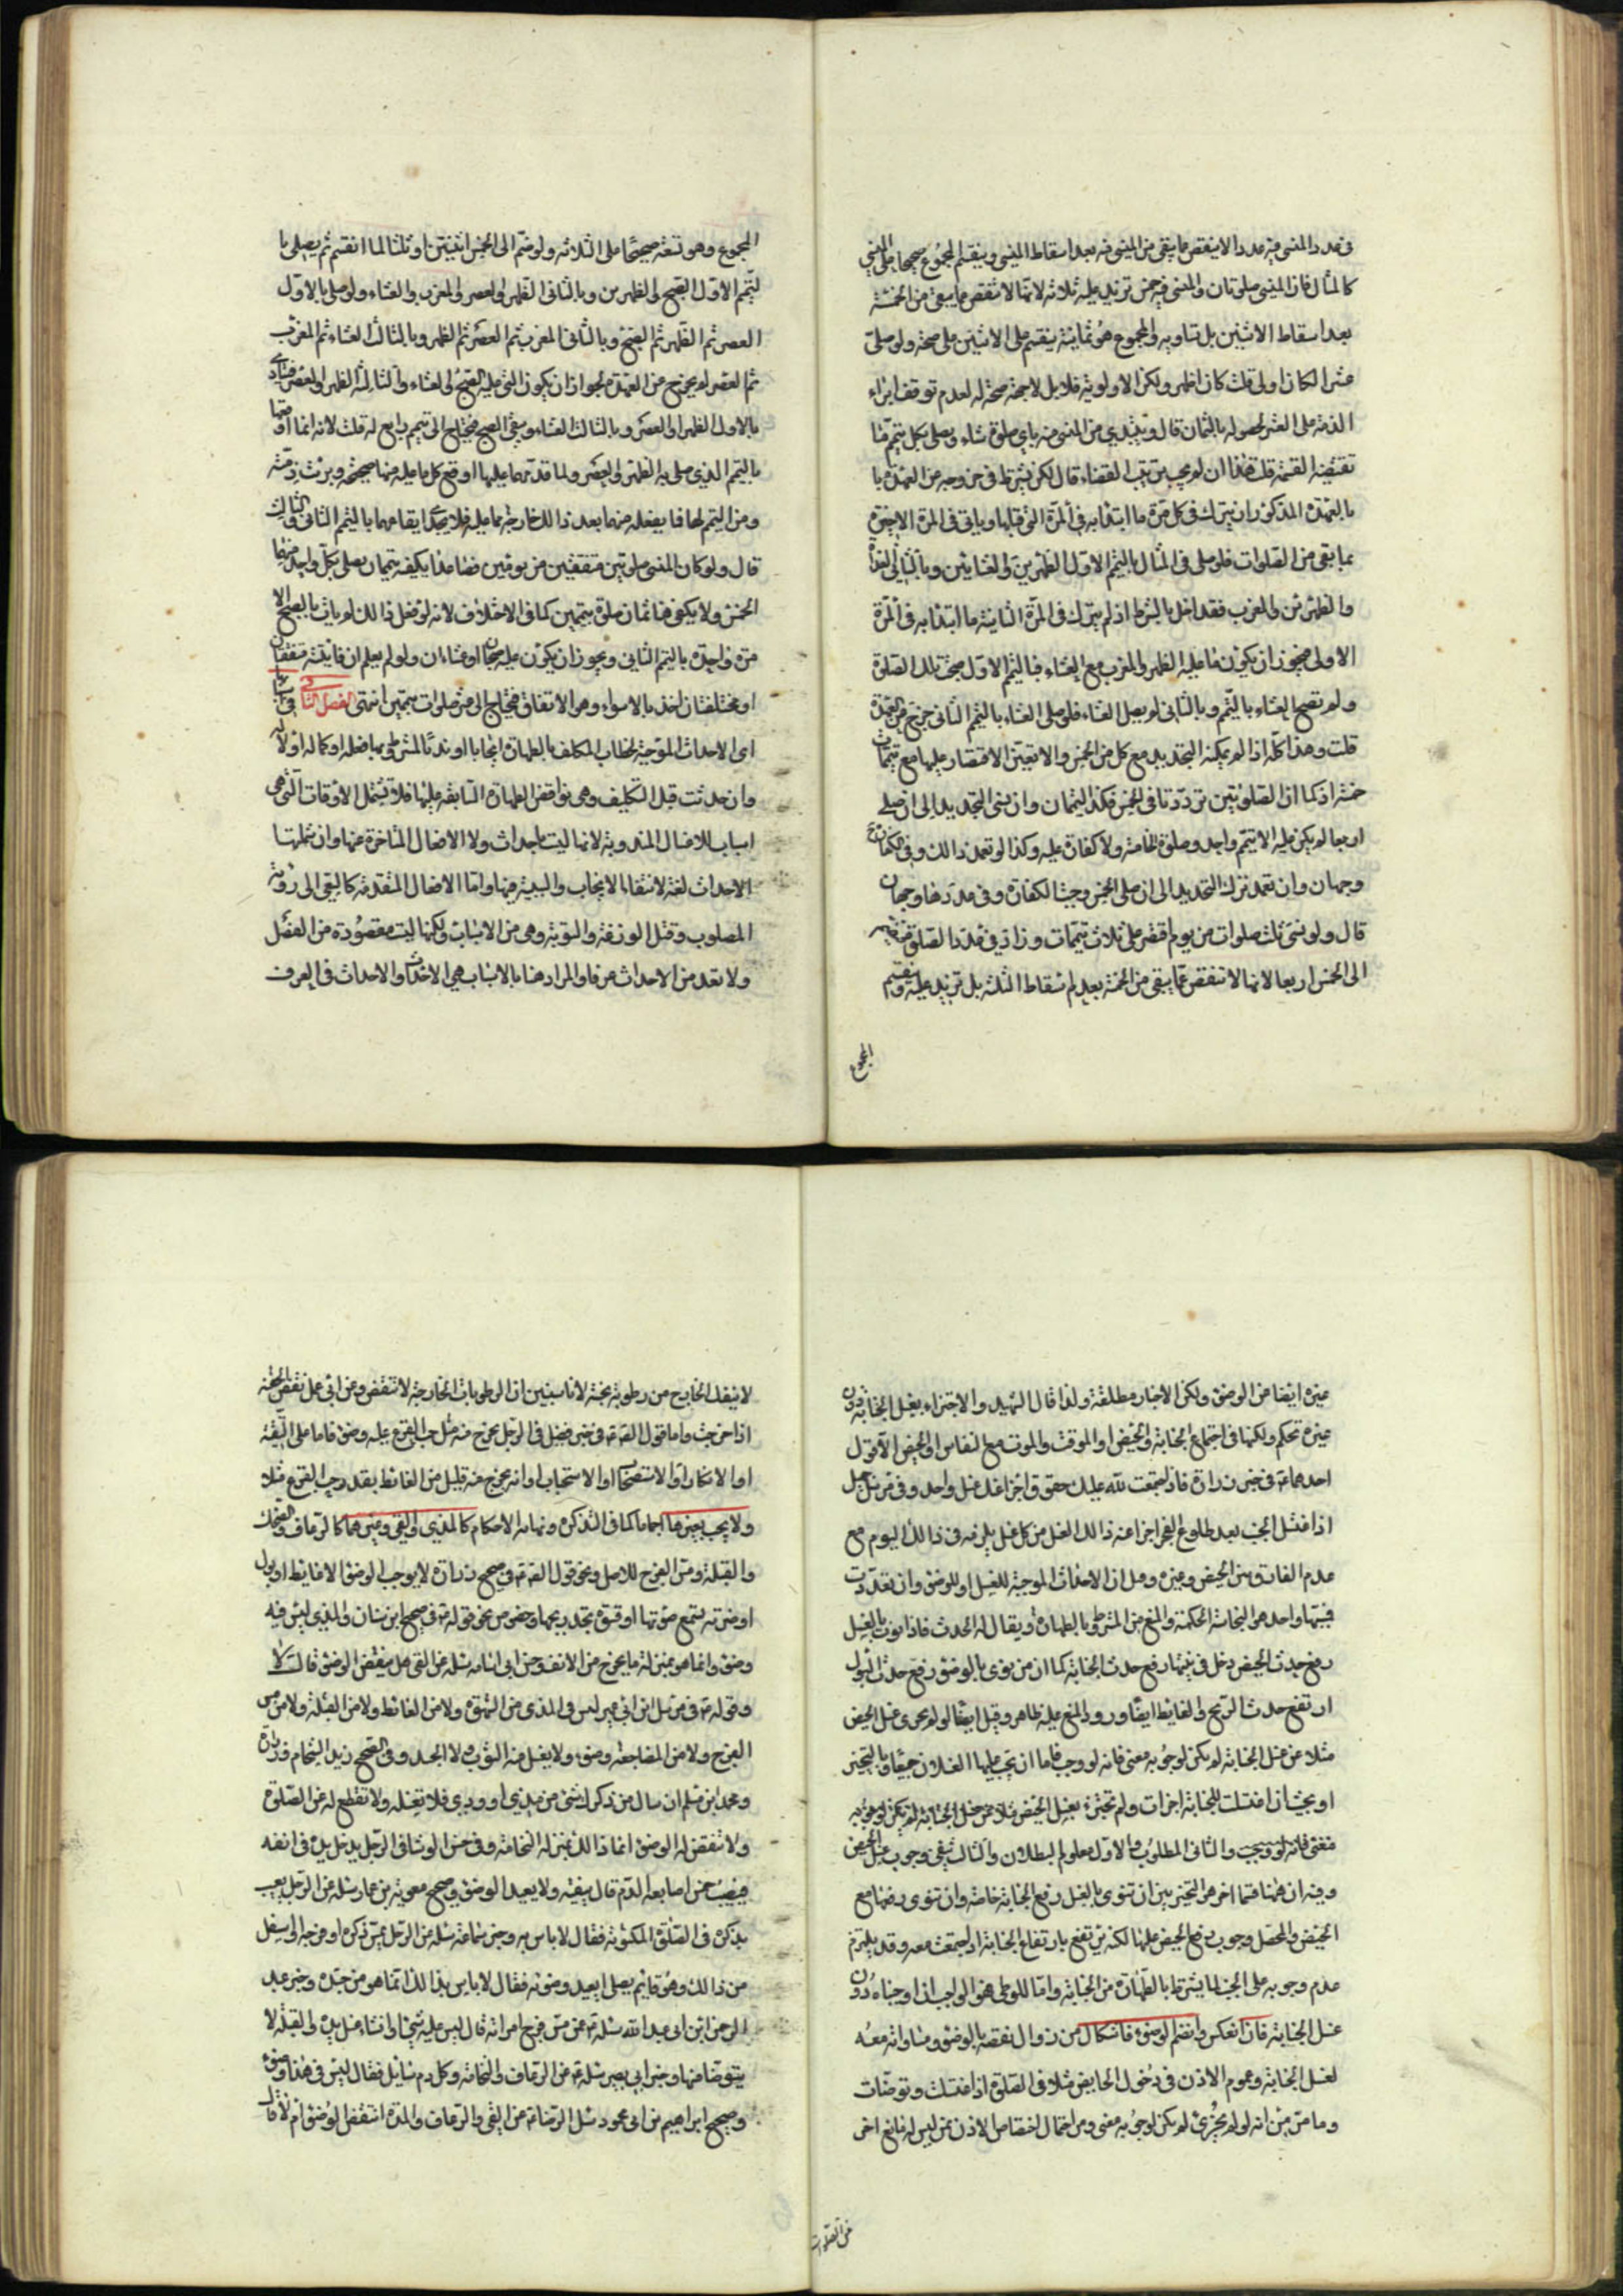 في عدد المنسى فيه عدد الا ينقص عما يبقى من المنسى فيه بعد اسقاط المنسى وينقسم المجموع صحيحا على المنسى
كالمثال فان المنسى صلوتان والمنسى فيه خمس تزيد عليه ثلاثة لانها لا تنقص عما يبقى من الخمسة
بعد اسقاط الاثنين بل تساويه والمجموع هو ثمانية ينقسم على الاثنين على صحة ولو صلى
عشرا لكان اولى قلت كان اظهر ولكن الاولوية فلا بل لا جهة صحة له لعدم توقف ابراء
الذمة على العشر لحصوله بالثمان قال ويبتدي من المنسى فيه باي صلوة شاء ويصلى بكل تيمم ما
تقتضيه القسمة قلت هذا ان لم يجب ترتيب القضاء قال لكن يشترط في خروجه من العهدة با
بالعهدة المذكور ان يترك في كل مرة ما ابتدا به في المرة التي قبلها وياتى في المرة الاخيرة
بما بقى من الصلوات فلو صلى في المثال بالتيمم الاول الظهرين والعشائين وبالثاني الغداة
والظهرين والمغرب فقد اخل بالشرط اذ لم يترك في المرة الثانية ما ابتدا به في المرة
الاولى فيجوز ان يكون ما عليه الظهر او المغرب مع العشاء فبالتيمم الاول صحت تلك الصلوة
ولم تصح العشاء بالتيمم وبالثاني لم يصل العشاء فلو صلى العشاء بالتيمم الثاني خرج من العهدة
قلت وهذا كله اذا لم يمكنه التجديد مع كل من الخمس والا تعين الاقتصار عليها مع تيممات
خمسة اذ كما ان الصلوتين ترددتا في الخمس فكذا التيممان وان نسى التجديد الى ان صلى
اربعا لم يكن عليه الا تيمم واحد وصلوة الخامسة ولا كفارة عليه وكذا لو تعمد ذالك وفي الكفارة ح
وجهان وان تعمد ترك التجديد الى ان صلى الخمس وجبت الكفارة وفي عددها وجهان
قال ولو نسى ثلث صلوات من يوم اقتصر على ثلاث تيممات وزاد في عدد الصلوة فيضم
الى الخمس اربعا لانها لا تنقص عما يبقى من الخمسة بعد اسقاط الثلثة بل تزيد عليه وينقسم
المجموع
المجموع وهو تسعة صحيحا على الثلاثة ولو ضم الى الخمس اثنتين او ثلثا لما انقسم ثم يصلى با
لتيمم الاول الصبح والظهرين وبالثانى الظهر والعصر والمغرب وبالثالث العصر والمغرب والعشاء ولو صلى بالاول
العصر ثم الظهر ثم الصبح وبالثاني المغرب ثم العصر ثم الظهر وبالثالث العشاء ثم المغرب
ثم العصر لم يخرج من العهدة لجواز ان يكون التي عليه الصبح والعشاء والثالثة الظهر او العصر فيتادى
بالاول الظهر او العصر وبالثالث العشاء ويبقى الصبح فيحتاج الى تيمم رابع له قلت لانه انما اوقعها
بالتيمم الذي صلى به الظهر والعصر ولما قد تم ما عليها اوقع كل ما عليه منها صحيحة وبرئت ذمته
ومن التيمم لها فا يفعله منهما بعد ذالك خارجة عما عليه فلا يجدى ايقاعهما بالتيمم الثاني والثالث
قال ولو كان المنسى صلوتين متفقتين من يومين فصاعدا يكفيه تيممان يصلى بكل واحد منهما
الخمس ولا يكفى هنا ثمان صلوة بتيممين كما في الاختلاف لانه لو فعل ذالك لم يات بالصبح الا
مرة واحدة بالتيمم الثاني ويجوز ان يكون عليه صبحان او عشاءان ولو لم يعلم ان فائتته متفقتان
او مختلفتان اخذ بالاسواء وهو الاتفاق فيحتاج الى عشر صلوات بتيممين انتهى الفصل الثاني في اسبابها
اى الاحداث الموجبة لخطاب المكلف بالطهارة ايجابا او ندبا لمشروطها صله او كماله او لا
وان حدثت قبل التكليف وهى نواقض الطهارة السابقة عليها فلا يشمل الاوقات التى هى
اسباب للافعال المندوبة لانها ليست باحداث ولا الافعال المتاخرة عنها وان شملتها
الاحداث لغة لانتفاء الايجاب والسببية فيها واما الافعال المتقدمة كالسعى الى رؤية
المصلوب وقتل الوزغة والتوبة وهى من الاسباب ولكنها ليست مقصودة من الفصل
ولا تعد من الاحداث عرفا والمراد هنا بالاسباب هى الاحداث والاحداث في العرف
غيره ايضا من الوضوء ولكن الاخبار مطلقة ولذا قال الشهيد والاجتزاء بغسل الجنابة دون
غيره تحكم ولكنها في اجتماع الجنابة والحيض او الموت والموت مع النفاس او الحيض الا قول
احدهما ع في خبر زرارة فاذا اجتمعت لله عليك حقوق اجزا عنك غسل واحد وفي مرسل جميل
اذا اغتسل الجنب بعد طلوع الفجر اجزا عنه ذالك الغسل من كل غسل يلزمه في ذالك اليوم مع
عدم الفارق بين الحيض وغيره وعلى ان الاحداث الموجبة للغسل او للوضوء وان تعددت
فسببها واحد هو النجاسة الحكمية والمنع من المشروط بالطهارة ويقال له الحدث فاذا نوت بالغسل
رفع حدث الحيض دخل في نيتها رفع حدث الجنابة كما ان من نوى بالوضوء رفع حدث البول
ارتفع حدث الريح والغايط ايضا ورود المنع عليه ظاهر وقيل ايضا لو لم يجزى غسل الحيض
مثلا عن غسل الجنابة لم يكن لوجوبه معنى فانه لو وجب فاما ان يجب عليها الغسلان جميعا وبالتخيير
او بحيث ان اغتسلت للجنابة اجزات ولم تجتزء بغسل الحيض مثلا عن غسل الجنابة لم يكن لوجوبه
معنى فانه لو وجب والثانى المطلوب والاول معلوم البطلان والثالث ينفى وجوب غسل الحيض
وفيه ان ههنا قسما اخر هو التخيير بين ان تنوى بالغسل رفع الجنابة خاصة وان تنوى رفعها مع
الحيض والمحصل وجوب رفع الحيض عليها لكنه يرتفع بارتفاع الجنابة اذا اجتمعت معه وقد يلتزم
عدم وجوبه على الجنب لما يشترط بالطهارة من الجنابة واما للوطى فهو الواجب اذا اوجبناه دون
غسل الجنابة فان انعكس وانضم الوضوء فاشكال من زوال نقصه بالوضوء ومساواته معه
لغسل الجنابة وعموم الاذن في دخول الحايض مثلا في الصلوة اذا اغتسلت وتوضات
وما مر من انه لو لم يجزئ لم يكن لوجوبه معنى ومن احتمال اختصاص الاذن بمن ليس له مانع اخر
من الصلوات
لا ينفك الخارج من رطوبة نجسة لانا سنبين ان الرطوبات الخارجة لا تنقض وعن ابى على نقض الحقنة
اذا خرجت واما قول الص ع في خبر فضيل في الرجل يخرج منه مثل حب القرع عليه وضوء فاما على التقية
او الانكار او الاستفهام او الاستحباب او انه يخرج عنه قليل من الغائط بقدر حب القرع مثلا
ولا يجب بغيرها اجماعا كما في التذكرة ونهاية الاحكام كالمذي والقى وغيرهما كالرعاف والضحك
والقبلة ومس الفرج للاصل ونحو قول الص ع في صحيح زرارة لا يوجب الوضوء الا غايط او بول
او ضرطة تسمع صوتها او فسوة تجد ريحها وخصوص نحو قوله ع في صحيح ابن سنان والمذي ليس فيه
وضوء وانما هو بمنزلة ما يخرج من الانف وخبر ابى اسامة سئله عن القى هل ينقض الوضوء قال لا
وقوله ع في مرسل ابن ابي عمير ليس في المذى من الشهوة ولا من الانعاظ ولا من القبلة ولا من مس
الفرج ولا من المضاجعة وضوء ولا يغسل منه الثوب ولا الجسد وفي الصحيح زيد الشحام وزرارة
ومحمد ابن مسلم ان سال من ذكرك شئ من مذي او وودي فلا تغسله ولا تقطع له عن الصلوة
ولا تنقض له الوضوء انما ذالك بمنزلة النخامة وفي خبر الوشا في الرجل يدخل يده في انفه
فيصيب خمس اصابعه الدم قال ينقيه ولا يعيد الوضوء وصحيح معوية بن عمار سئله عن الرجل يعبث
بذكره في الصلوة المكتوبة فقال لا باس به وخبر سماعة سئله عن الرجل يمس ذكره او فرجه او اسفل
من ذالك وهو قايم يصلى ايعيد وضوئه فقال لا باس بذالك انما هو من جسده وخبر عبد
الرحمن ابن ابى عبد الله سئله ع عن مس فرج امراته قال ليس عليه شئ وان شاء غسل يده والقبلة لا
يتوضا منها وخبر ابى بصير سئله ع عن الرعاف والحجامة وكل دم سائل فقال ليس في هذا وضوء
وصحيح ابراهيم بن ابى محمود سئل الرضا ع عن القى والرعاف والمدة اتنقض الوضوء ام لا قال